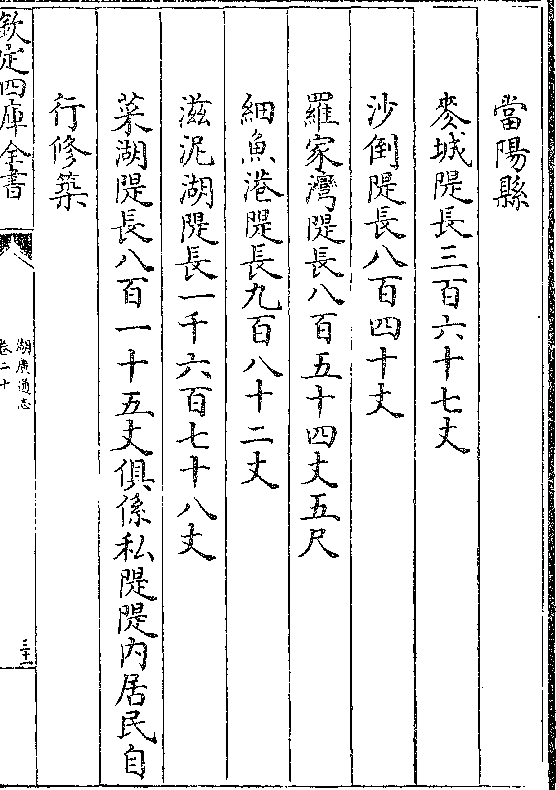 當陽縣
麥城隄長三百六十七丈
沙倒隄長八百四十丈
羅家灣隄長八百五十四丈五尺
細魚港隄長九百八十二丈
滋泥湖隄長一千六百七十八丈
菜湖隄長八百一十五丈俱係私隄隄内居民自
行修築
欽定四庫全書
湖廣通志
卷二十
三十一